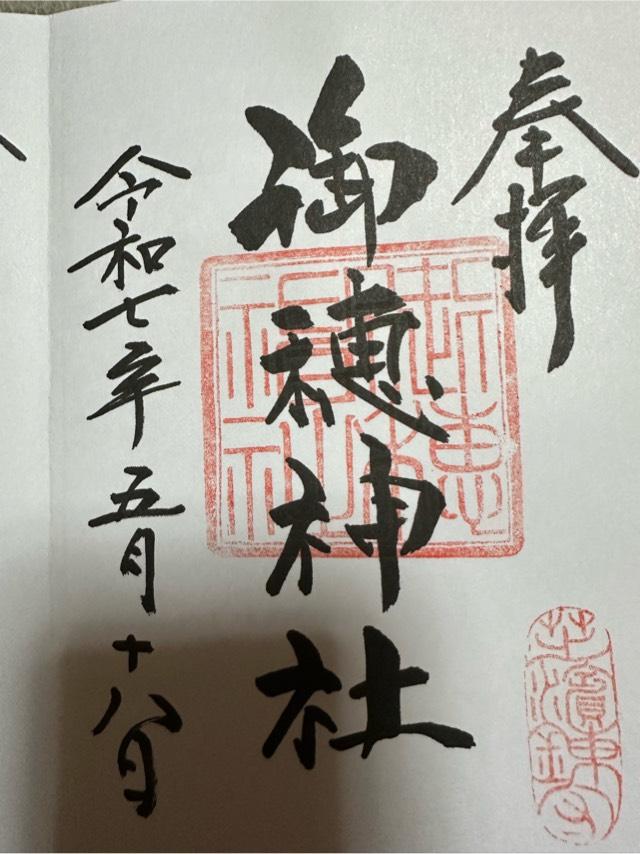 奉拝
御穂神社
令和七年五月十八日